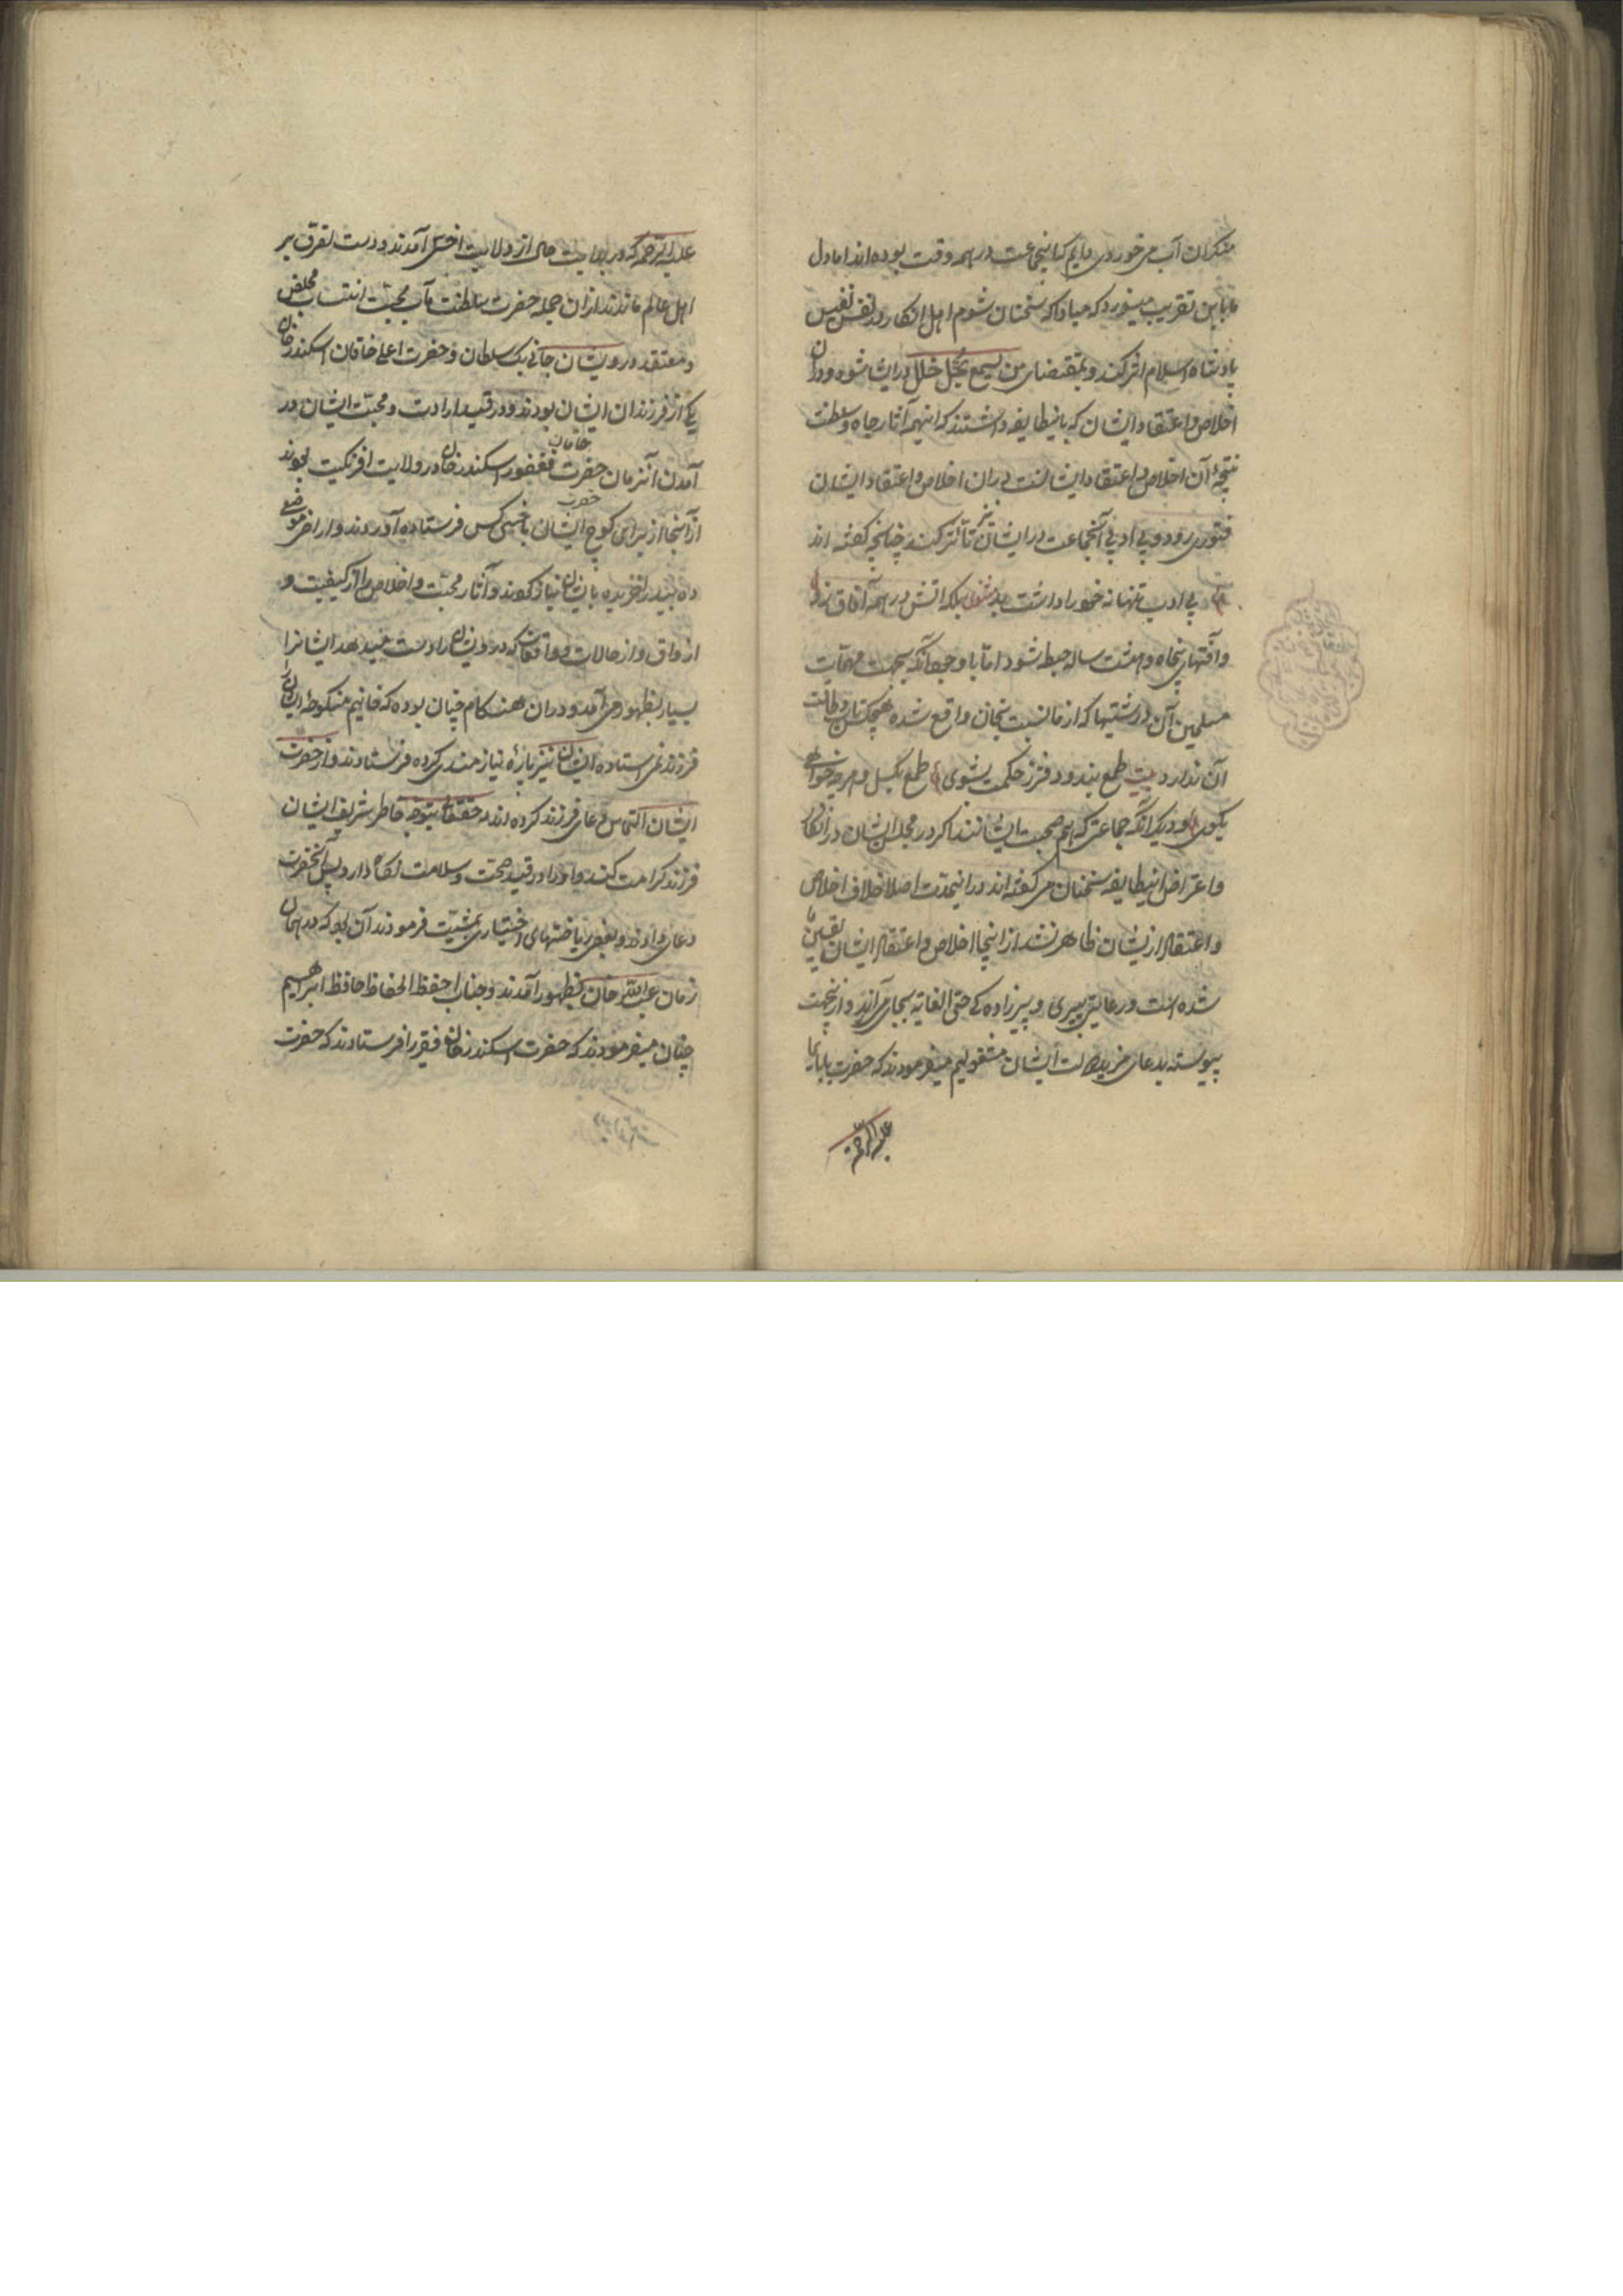 منکران آب می خوردی دایم که اینجماعت در همه وقت بوده اند اما دل
ما باین تقریب میسوزد که مبادا که سخنان شوم اهل انکار در نفس نفیس
پادشاه اسلام اثر کند و بمقتضای من یسمع یخل خلل در ایشان شود و در آن
اخلاص و اعتقاد ایشان که باینطایفه داشتند که اینهمه آثار جاه و سلطنت
نتیجهٔ آن اخلاص و اعتقاد ایشانست در آن اخلاص و اعتقاد ایشان
فتوری رود و بی ادبی آنجماعت در ایشان نیز تأثر کند چنانچه گفته اند
بی ادب تنها نه خود را داشت بد مثنوی بلکه آتش در همه آفاق زد
و آفتهای پنجاه و هشت ساله حبطه شود اما با وجود آنکه بجهت مهمات
مسلمین آن درشتیها که از ما نسبت بخان واقع شده هیچکس طاقت
آن ندارد بیت طمع بند و دفتر ز حکمت بشوی طمع بگسل و هر چه خواهی
بگوی و دیگر آنکه جماعتی که هم صحبت ایشانند اگر در مجلس ایشان در انکار
و اعتراض اینطایفه سخنان می گفته اند در اینمدت اصلا خلاف اخلاص
و اعتقاد از ایشان ظاهر نشد از اینجا اخلاص و اعتقاد ایشان یقین ما
شده است و رعایت پیری و پیرزاده کی حتی الغایه بجای می آرند و از اینجهت
پیوسته بدعای مزید دولت ایشان مشغولیم میفرمودند که حضرت بابای ما
علیه الرحمه
علیه الرحمه که در بدایت حال از ولایت اخسی آمدند و دست تصرف بر
اهل عالم ماندند از ان جمله حضرت سلطنت مآب محبت انتساب مخلص
و معتقد درویشان جانی بک سلطان و حضرت اعلی خاقان اسکندر خان
یکی از فرزندان ایشان بودند و در قید ارادت و محبت ایشان در
آمدن آنزمان حضرت خاقان فغفور اسکندر خان در ولایت افرنکیت بودند
از آنجا از برای کوچ ایشان باخسی کس فرستاده آوردند و اراضی موضع
ده بید را خریده بایشان نیاز کردند و آثار محبت و اخلاص را از کیفیت و
اذواق و از حالات و واقعات که درویشان را دست میدهد ایشانرا
بسیار بظهور می آمد و در ان هنکام چنان بوده که خانیم منکوحه ایشان را
فرزند نمی استاده ایشان نیز پارهٔ نیازمندی کرده فرستادند و از حضرت
ایشان التماس دعای فرزند کرده اند که حق تعالی بتوجه خاطر شریف ایشان
فرزند کرامت کند و او را در قید صحت و سلامت نگاه دارد پس آنحضرت
دعای دادند و بعضی ریاضتهای اختیاری بمشیت فرمودند آن بود که در همان
زمان عبد الله خان بظهور آمدند و جناب احفظ الحفاظ حافظ ابراهیم
چنان میفرمودند که حضرت اسکندر خان فقیر را فرستادند که حضرت